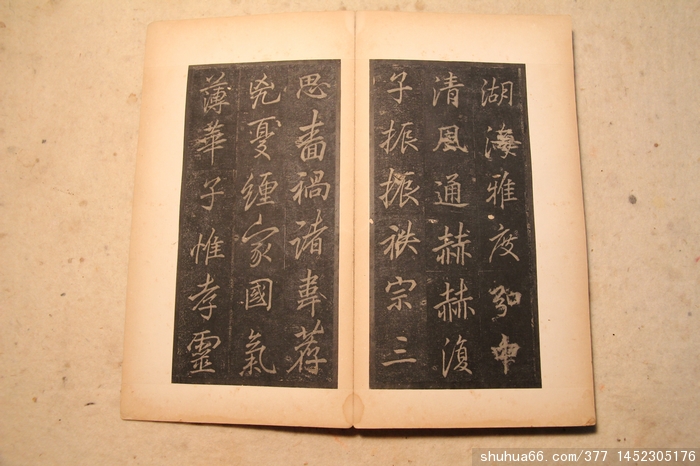 湖海雅度弘申
清風通赫赫復
子振振秩宗三
思禍諸荐
兇憂纏家國氣
薄華子惟孝靈
shuhua66.com/377 1452305176